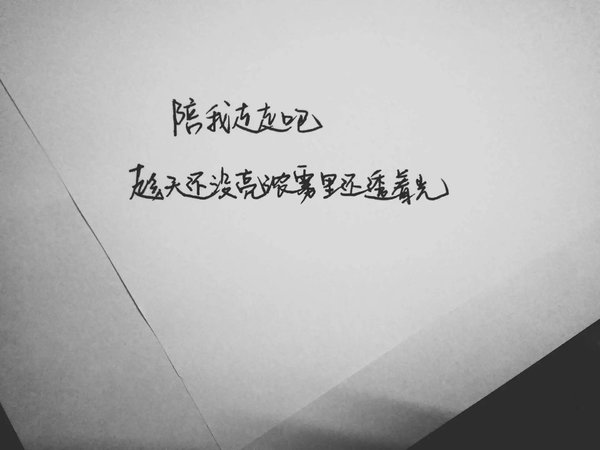 陪我走走吧
趁天还没亮浓雾里还透着光